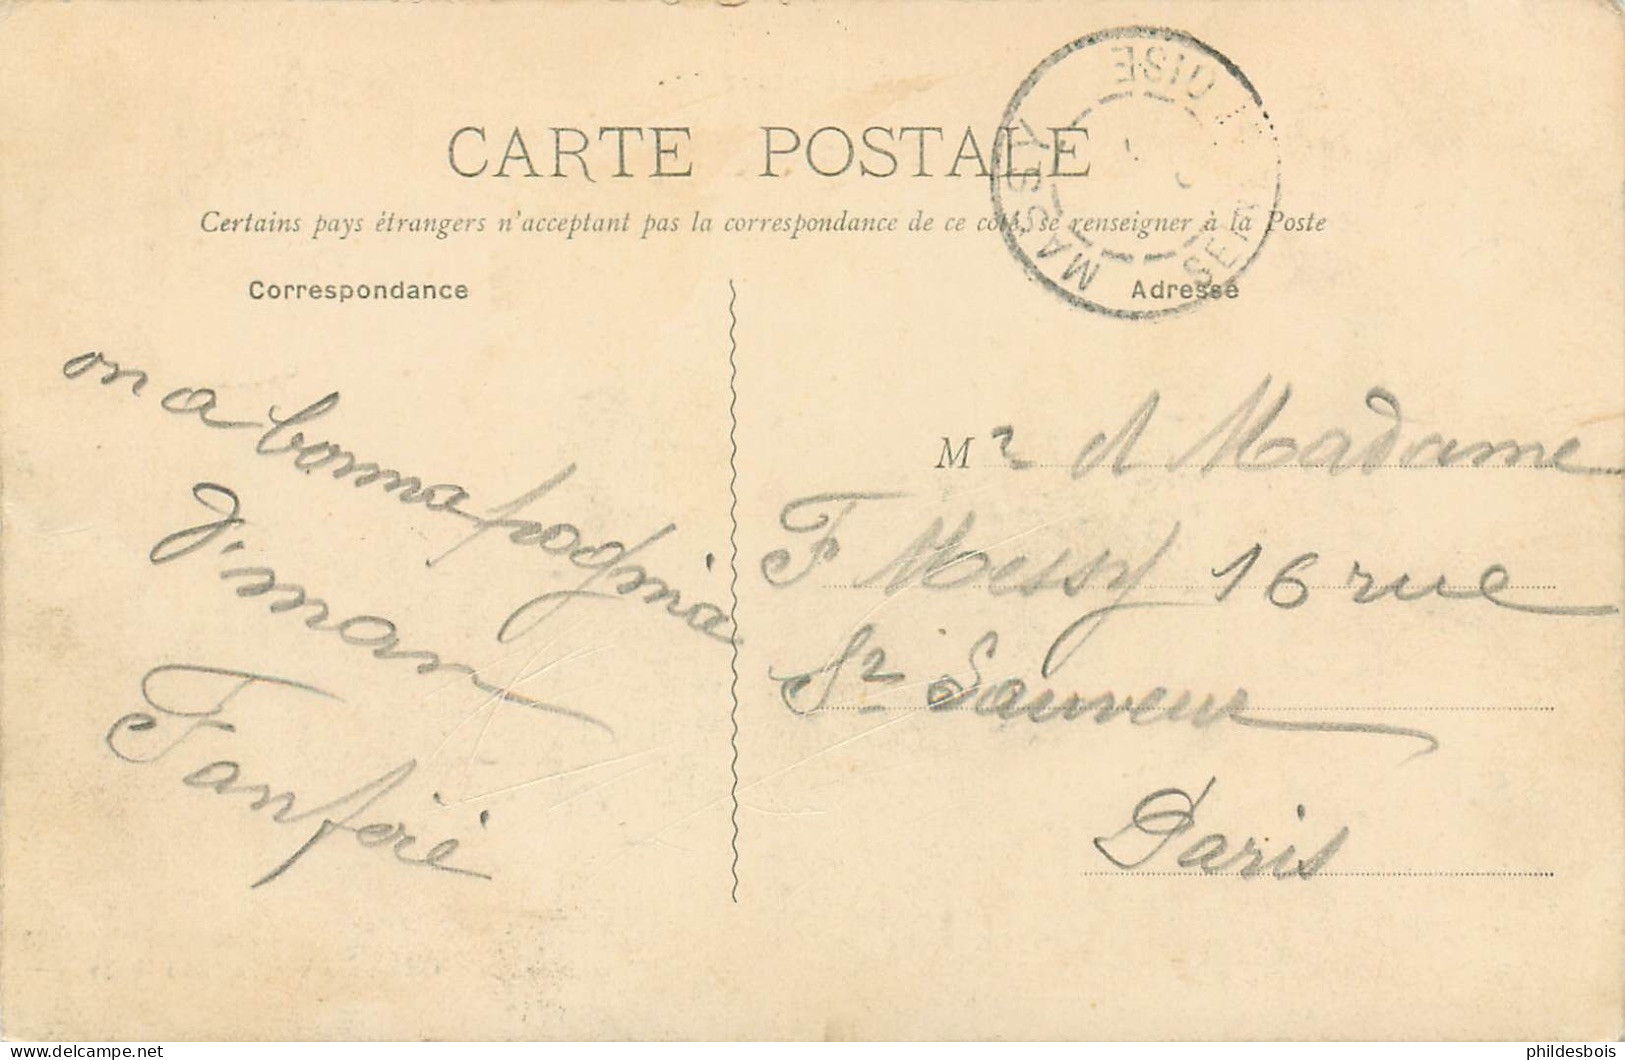 CARTE POSTALE
Certains pays étrangers n'acceptant pas la correspondance de ce côté, se renseigner à la Poste
MASSY
SEINE OISE
Correspondance
Adresse
on a bonna pognia
J. man
Fanfoié
Mr et Madame
F Messy 16 rue
St Sauveur
Paris
phildesbois